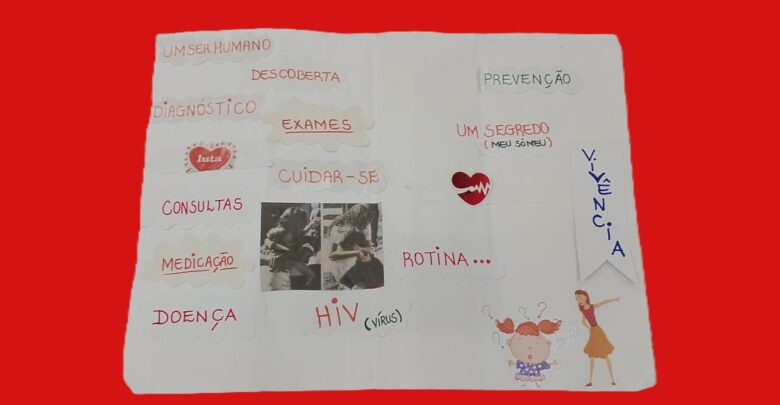 UM SER HUMANO
DESCOBERTA
PREVENÇÃO
DIAGNÓSTICO
EXAMES
UM SEGREDO
(MEU SÓ MEU)
luta
CUIDAR-SE
VIVÊNCIA
CONSULTAS
MEDICAÇÃO
ROTINA...
DOENÇA
HIV (VÍRUS)
? ? ? ? ?